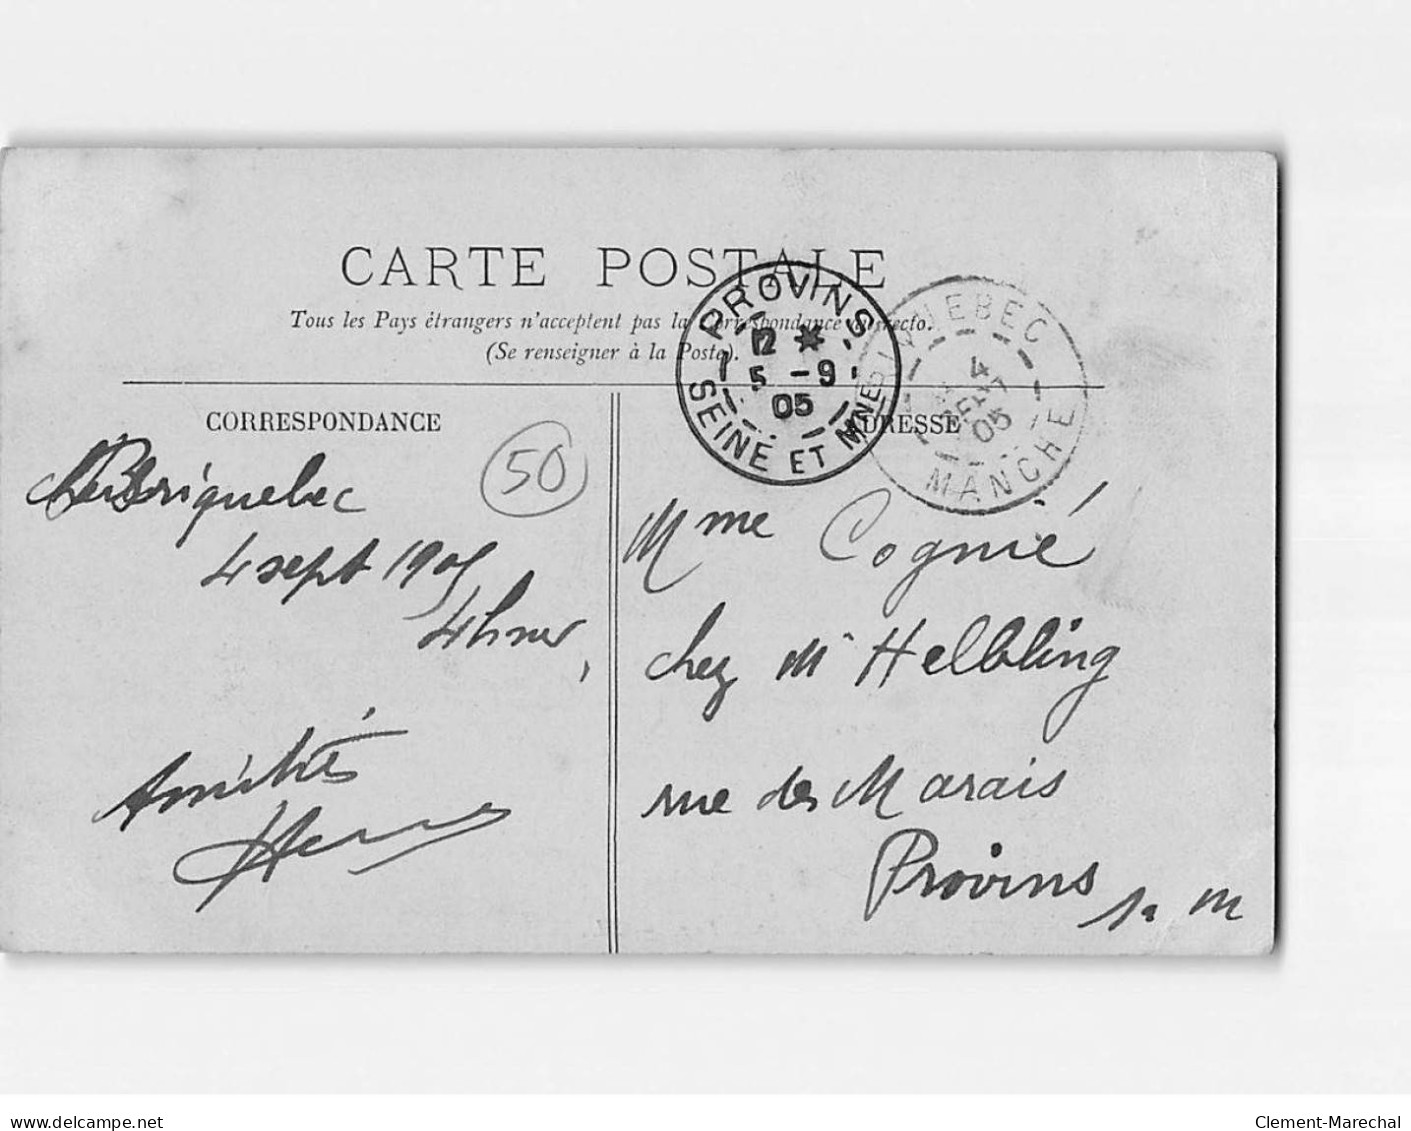 CARTE POSTALE
Tous les Pays étrangers n'acceptent pas la Correspondance au recto.
(Se renseigner à la Poste).
PROVINS
12 *
5 - 9
05
SEINE ET MNE
BRIQUEBEC
4
SEPT
05
MANCHE
CORRESPONDANCE
ADRESSE
50
Briquebec
4 sept 1905
Amitiés
Mme Cognié
chez Mr Helbling
rue des Marais
Provins
S. M
www.delcampe.net
Clement-Marechal